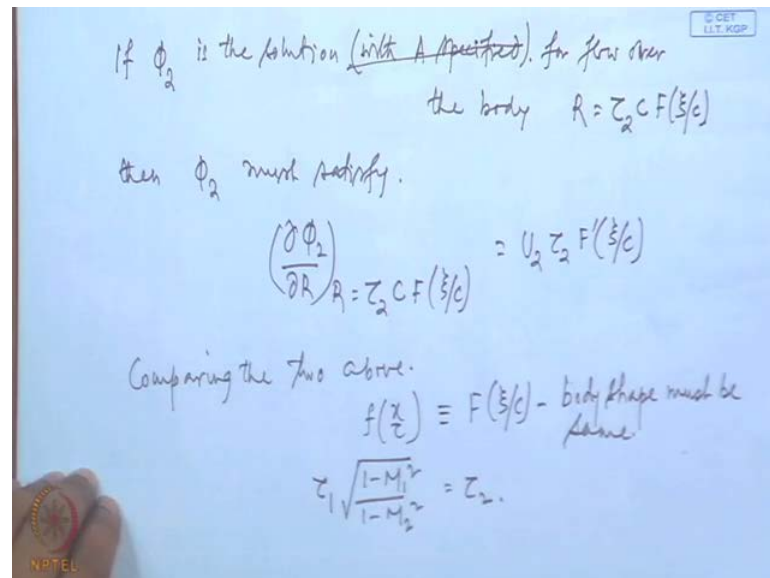 © CET
I.I.T. KGP
If ϕ₂ is the solution (with A specified). for flow over
the body R = τ₂ C F(ξ/c)
then ϕ₂ must satisfy.
(∂ϕ₂/∂R)_{R = τ₂ C F(ξ/c)} = U₂ τ₂ F'(ξ/c)
Comparing the two above.
f(x/c) ≡ F(ξ/c) - body shape must be
same.
τ₁ √((1-M₁²)/(1-M₂²)) = τ₂.
NPTEL